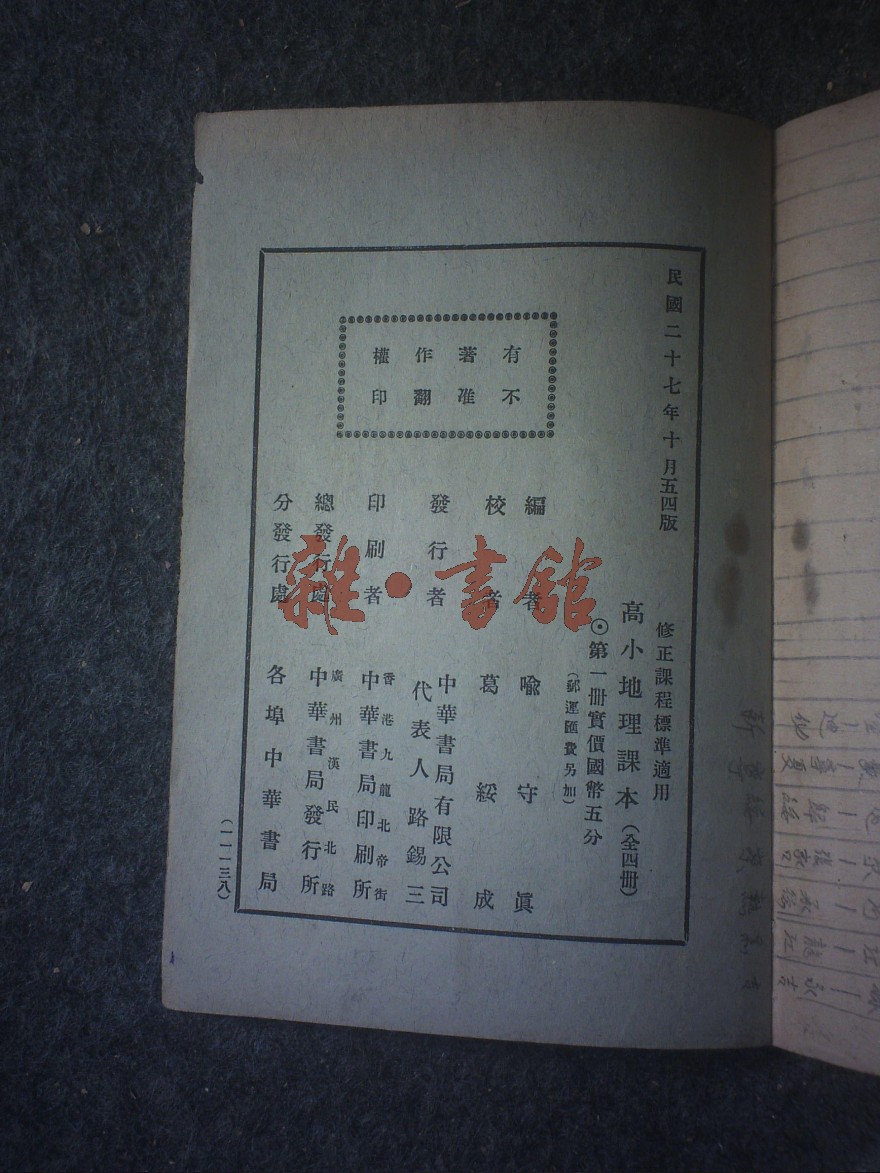 民國二十七年十月五四版
修正課程標準適用
高小地理課本(全四冊)
⊙第一冊實價國幣五分
(郵運匯費另加)
有著作權
不准翻印
編者 喻守眞
校者 葛綏成
發行者 中華書局有限公司
代表人路錫三
印刷者 香港九龍北帝街
中華書局印刷所
總發行處 廣州漢民北路
中華書局發行所
分發行處 各埠中華書局
(一一一三八)
雜·書館